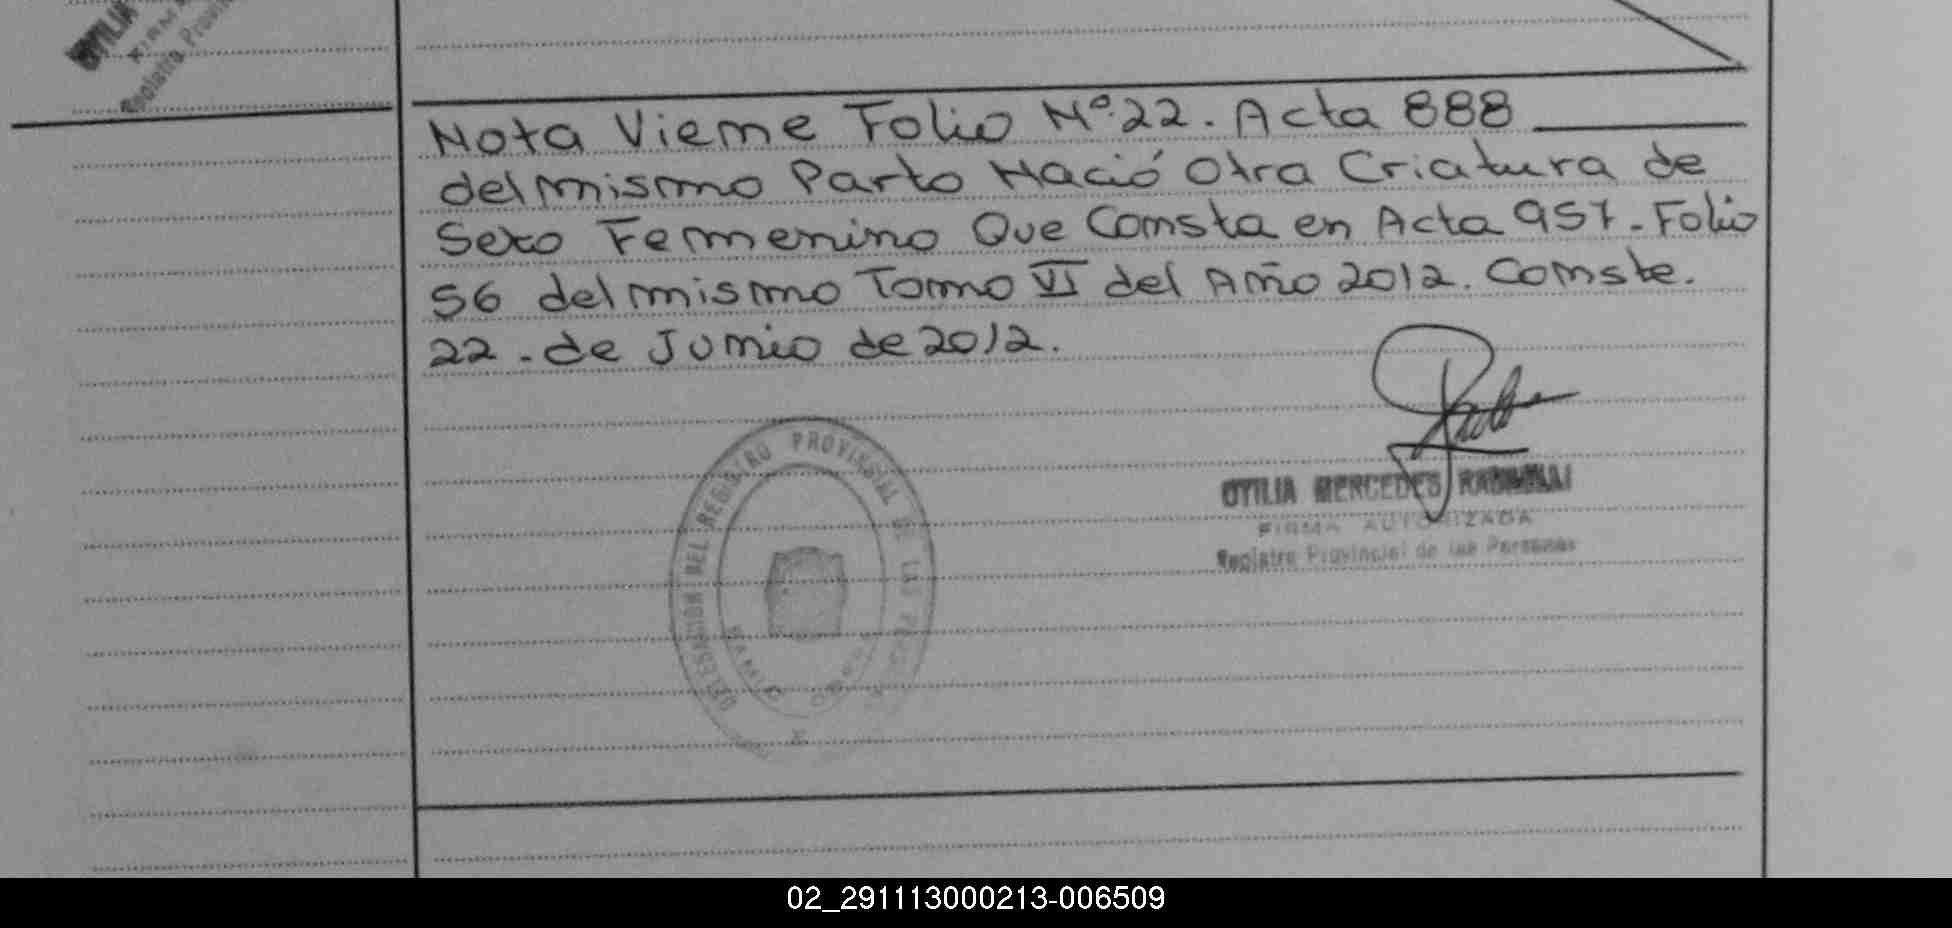 OTILIA
Registro Provin
Nota Viene Folio Nº 22. Acta 888
del mismo Parto Nació Otra Criatura de
Sexo Femenino Que Consta en Acta 957 - Folio
56 del mismo Tomo VI del Año 2012. Conste.
22 - de Junio de 2012.
DELEGACIÓN DEL REGISTRO PROVINCIAL DE LAS
OTILIA MERCEDES
FIRMA AUTORIZADA
Registro Provincial de las Personas
02_291113000213-006509